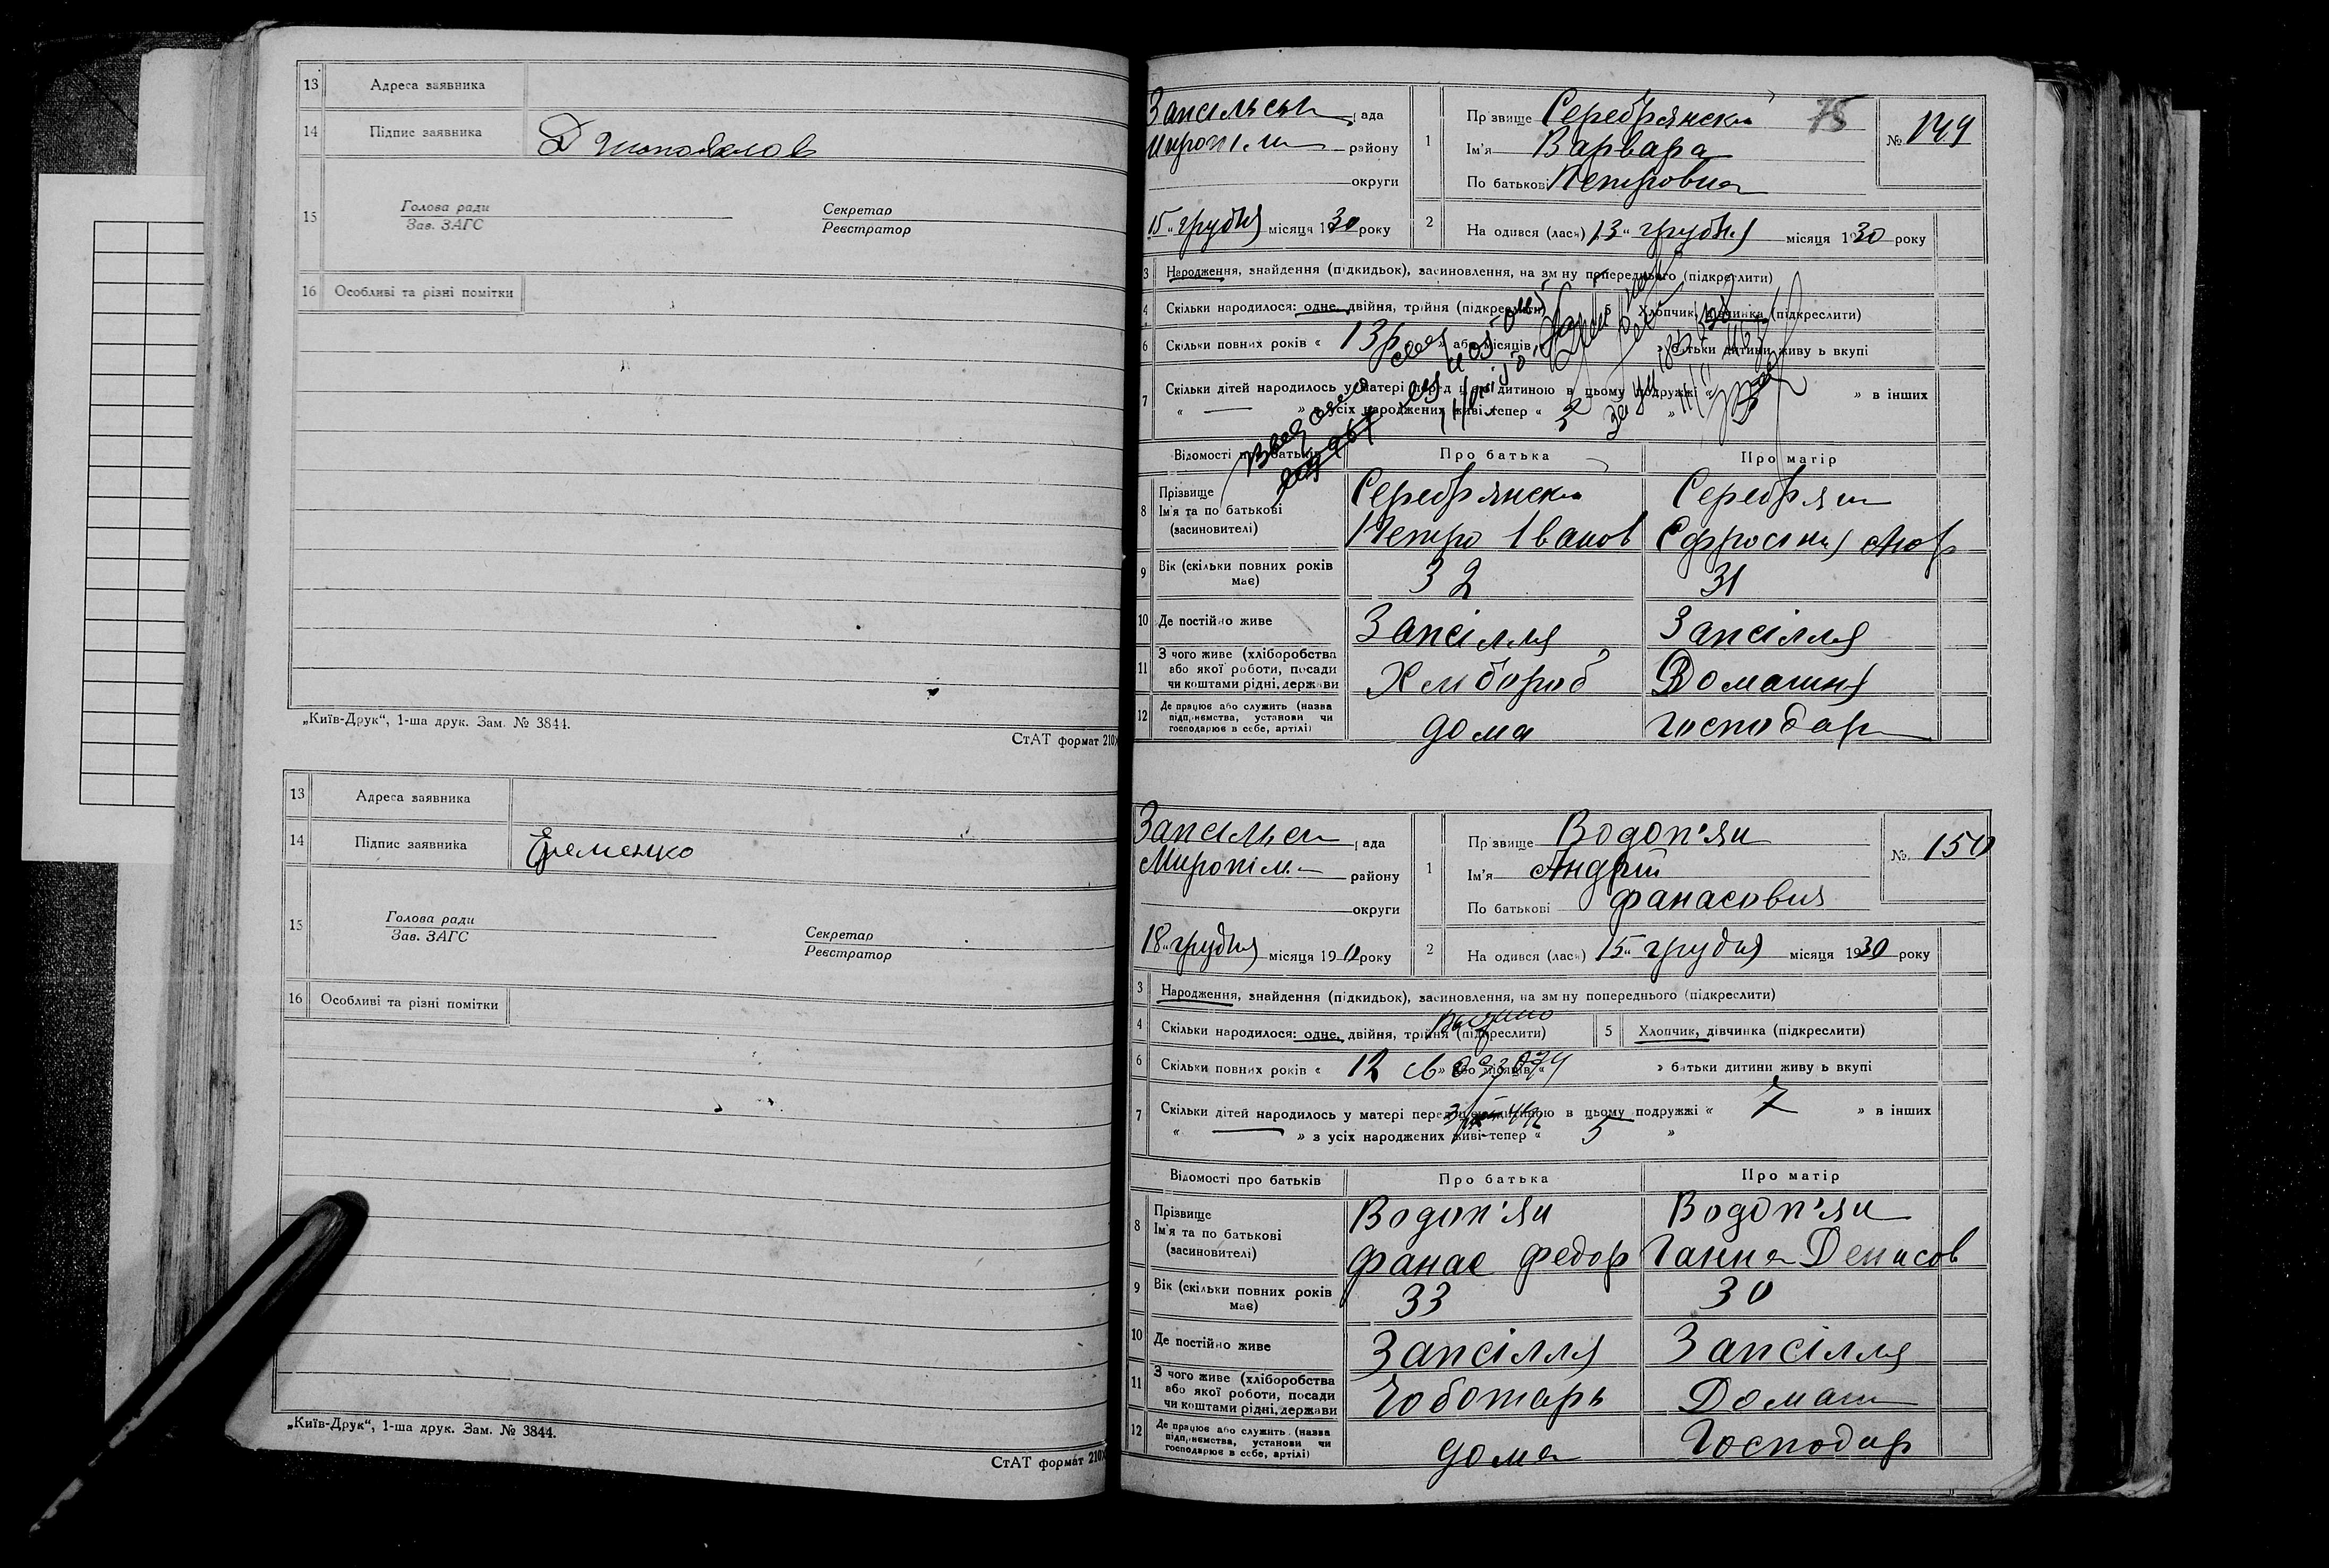 13 Адреса заявника
14 Підпис заявника
15 Голова ради
Зав. ЗАГС
Секретар
Реєстратор
16 Особливі та різні помітки
„Київ-Друк“, 1-ша друк. Зам. № 3844.
СтАТ формат 210
13 Адреса заявника
14 Підпис заявника Єременко
15 Голова ради
Зав. ЗАГС
Секретар
Реєстратор
16 Особливі та різні помітки
„Київ-Друк“, 1-ша друк. Зам. № 3844.
СтАТ формат 210
Запсільськ рада
району
округи
15 „ грудня місяця 1930 року
1 Прізвище Серебрянськ 75
Ім'я Варвара
По батькові Петровна
№ 149
2 Народився (лась) 13 „ грудня місяця 1930 року
3 Народження, знайдення (підкидьок), засиновлення, на зміну попереднього (підкреслити)
4 Скільки народилося: одне, двійня, трійня (підкреслити) 5 Хлопчик, дівчинка (підкреслити)
6 Скільки повних років « 13 » або місяців батьки дитини живуть вкупі
7 Скільки дітей народилось у матері перед цією дитиною в цьому подружжі « » в інших
« — » з усіх народжених живі тепер « 3 »
Відомості про батьків Про батька Про матір
8 Прізвище Серебрянск Серебрян
Ім'я та по батькові Петро Іванов Єфросинія
(засиновителі)
9 Вік (скільки повних років має) 32 31
10 Де постійно живе Запсілля Запсілля
11 З чого живе (хліборобства або якої роботи, посади чи коштами рідні, держави Хлібороб Домашня
12 Де працює або служить (назва підприємства, установи чи господарює в себе, артілі) дома господар
Запсільськ рада
Миропіл району
округи
18 „ грудня місяця 19 року
1 Прізвище Водоп'ян
Ім'я Андрій
По батькові Фанасович
№ 150
2 Народився (лась) 15 „ грудня місяця 1930 року
3 Народження, знайдення (підкидьок), засиновлення, на зміну попереднього (підкреслити)
4 Скільки народилося: одне, двійня, трійня (підкреслити) 5 Хлопчик, дівчинка (підкреслити)
6 Скільки повних років « 12 » або місяців « » батьки дитини живуть вкупі
7 Скільки дітей народилось у матері перед цією дитиною в цьому подружжі « 7 » в інших
« — » з усіх народжених живі тепер « 5 »
Відомості про батьків Про батька Про матір
8 Прізвище Водоп'ян Водоп'ян
Ім'я та по батькові Фанас Федор Ганна Денисов
(засиновителі)
9 Вік (скільки повних років має) 33 30
10 Де постійно живе Запсілля Запсілля
11 З чого живе (хліборобства або якої роботи, посади чи коштами рідні, держави Чоботарь Домаш
12 Де працює або служить (назва підприємства, установи чи господарює в себе, артілі) дома Господар